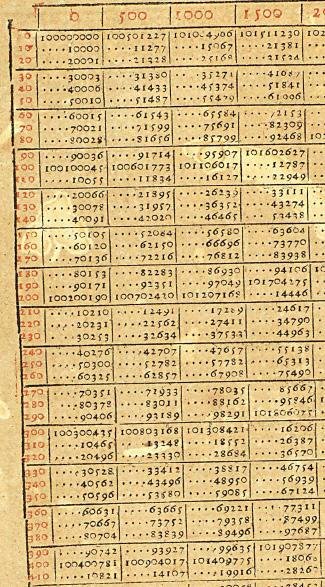 0 500 1000 1500 20
0 100000000 100501227 101004966 101511230 102
10 ....10000 ....11277 ....15067 ....21381
20 ....20001 ....21328 ....25168 ....31534
30 ....30003 ....31380 ....35271 ....41687
40 ....40006 ....41433 ....45374 ....51841
50 ....50010 ....51487 ....55479 ....61996
60 ....60015 ....61543 ....65584 ....72153
70 ....70021 ....71599 ....75691 ....82309
80 ....80028 ....81656 ....85799 ....92468
90 ....90036 ....91714 ....95907 101602627
100 100100045 100601773 101106017 ....12787
110 ....10655 ....11834 ....16127 ....22949
120 ....20066 ....21895 ....26239 ....33111
130 ....30078 ....31957 ....36352 ....43274
140 ....40091 ....42020 ....46465 ....53438
150 ....50105 ....52084 ....56580 ....63604
160 ....60120 ....62150 ....66696 ....73770
170 ....70136 ....72216 ....76812 ....83938
180 ....80153 ....82283 ....86930 ....94106
190 ....90171 ....92351 ....97049 101704275
200 100200190 100702420 101207168 ....14446
210 ....10210 ....12491 ....17289 ....24617
220 ....20231 ....22562 ....27411 ....34790
230 ....30253 ....32634 ....37533 ....44963
240 ....40276 ....42707 ....47657 ....55138
250 ....50300 ....52782 ....57782 ....65313
260 ....60325 ....62857 ....67908 ....75490
270 ....70351 ....72933 ....78035 ....85667
280 ....80378 ....83011 ....88162 ....95846
290 ....90406 ....93189 ....98291 101806025
300 100300435 100803168 101308421 ....16206
310 ....10465 ....13248 ....18552 ....26387
320 ....20496 ....23330 ....28684 ....36570
330 ....30528 ....33412 ....38817 ....46754
340 ....40562 ....43496 ....48950 ....56939
350 ....50596 ....53580 ....59085 ....67124
360 ....60631 ....63665 ....69221 ....77311
370 ....70667 ....73752 ....79358 ....87499
380 ....80704 ....83839 ....89496 ....97687
390 ....90742 ....93927 ....99635 101907877
400 100400781 100904017 101409775 ....18068
410 ....10821 ....14107 ....19916 ....28260